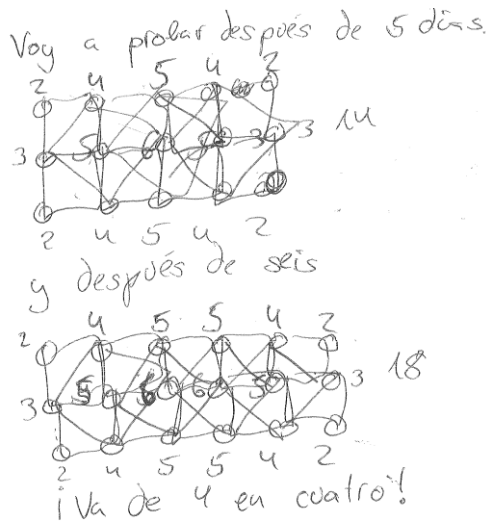 Voy a probar después de 5 días.
2 4 5 4 2
3 5 6 5 3 14
2 4 5 4 2
y después de seis
2 4 5 5 4 2
3 5 6 6 5 3 18
2 4 5 5 4 2
¡Va de 4 en cuatro!